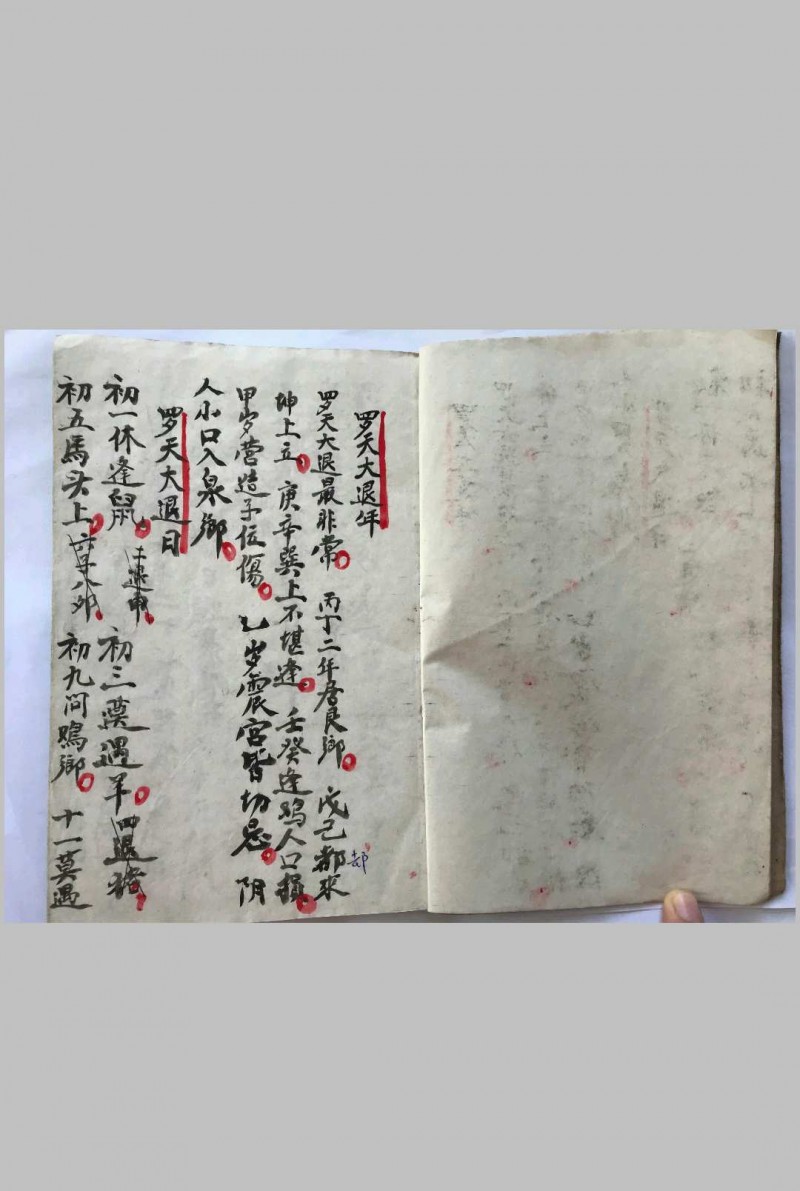 罗天大退年
罗天大退最非常。丙丁二年居艮鄉。戊己都來
却
坤上立。庚辛巽上不堪逢。壬癸逢鸡人口損。
甲岁营造子位傷。乙岁震宮皆切忌。阴
人小口入泉鄉。
罗天大退日
初一休逢鼠。二退申。初三莫遇羊。四退猪。
初五馬头上。六子八卯。初九问鸡鄉。十一莫遇